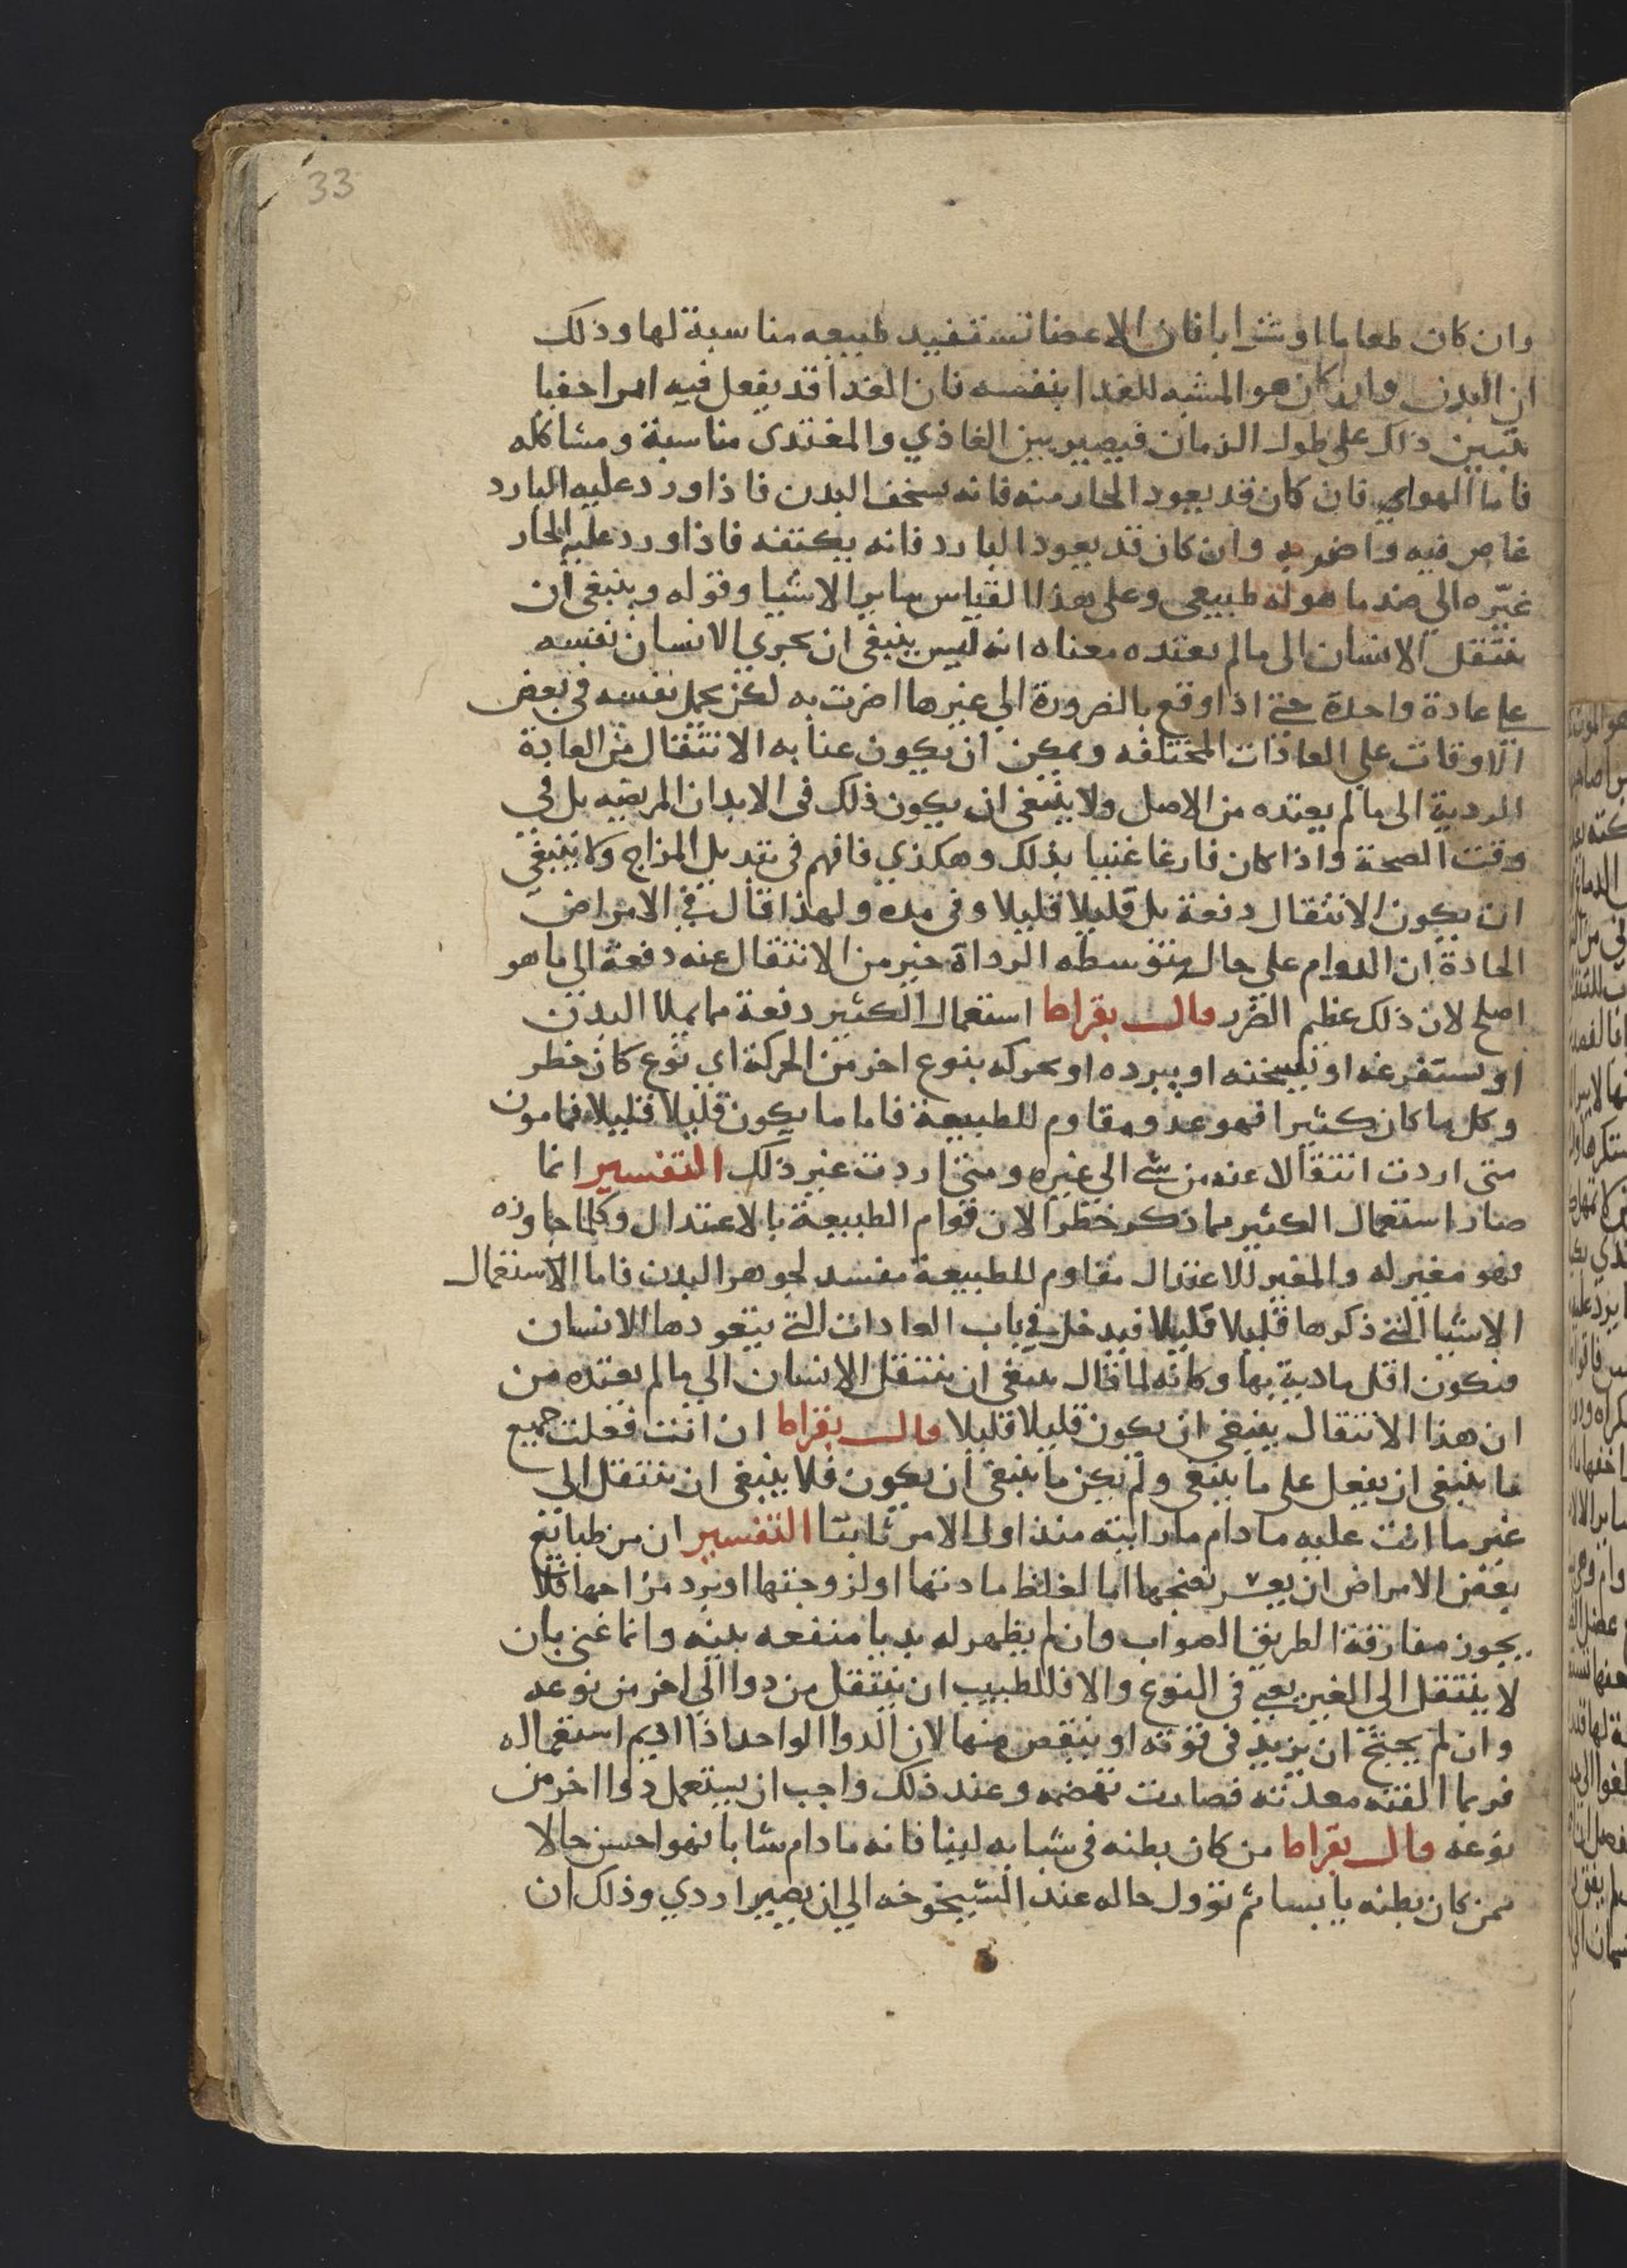 33
وان كان طعاما او شرابا فان الاعضا تستفيد طبيعه مناسبة لها وذلك
ان البدن وان كان هو المشبه للغدا بنفسه فان الغدا قد يفعل فيه امرا خفيا
يتبين ذلك على طول الزمان فيصير بين الغاذي والمغتدى مناسبة ومشاكله
فاما الهواي فان كان قد يعود الحار منه فانه يسخف البدن فاذا ورد عليه البارد
غاص فيه واضر به وان كان قد يعود البارد فانه يكتفه فاذا ورد عليه الحار
غيّره الي ضد ما هو له طبيعى وعلى هذا القياس ساير الاشيا وقوله وينبغى ان
ينتقل الانسان الى مالم يعتده معناه انه ليس ينبغى ان يجري الانسان نفسه
على عادة واحدة حتى اذا وقع بالضرورة الي غيرها اضرت به لكن يحمل نفسه في بعض
الاوقات علي العادات المختلفه ويمكن ان يكون عنا به الانتقال من العادة
الردية الى ما لم يعتده من الاصل ولا ينبغى ان يكون ذلك فى الابدان المريضه بل فى
وقت الصحة واذا كان فارغا غنيا بذلك وهكذي فافهم فى تبديل المزاج ولا ينبغي
ان يكون الانتقال دفعة بل قليلا قليلا وفى مده ولهذا قال في الامراض
الحادة ان الدوام على حال متوسطه الرداة خير من الانتقال عنه دفعة الى ما هو
اصلح لان ذلك عظم الضرر قال بقراط استعمال الكثير دفعة مما يملا البدن
او يستفرغه او يسخنه او يبرده او يحركه بنوع اخر من الحركة اي نوع كان خطر
وكل ما كان كثيرا فهو عدو مقاوم للطبيعة فاما ما يكون قليلا قليلا فمامون
متى اردت انتقالا عنه من شي الي غيره ومتى اردت غير ذلك التفسير انما
صار استعمال الكثير مما ذكر خطرا لان قوام الطبيعة بالاعتدال وكلما جاوزه
فهو مغير له والمغير للاعتدال مقاوم للطبيعة مفسد لجوهر البدن فاما الاستعمال
الاشيا التى ذكرها قليلا قليلا فيدخل في باب العادات التى يتعودها الانسان
فيكون اقل مادية بها وكانه لما قال ينبغى ان ينتقل الانسان الي ما لم يعتده من
ان هذا الانتقال ينبغى ان يكون قليلا قليلا قال بقراط ان انت فعلت جميع
ما ينبغى ان يفعل على ما ينبغى ولم يكن ما ينبغى ان يكون فلا ينبغى ان تنتقل الى
غير ما انت عليه ما دام ما رايته منذ اول الامر ثابتا التفسير ان من طبائع
بعض الامراض ان يعسر نضجها اما لغلظ مادتها او لزوجتها او برد مزاجها فلا
يجوز مفارقة الطريق الصواب وان لم يظهر له بديا منفعه بينه وانما عنى بان
لا ينتقل الى الغير يعى فى النوع والا فللطبيب ان ينتقل من دوا الي اخر من نوعه
وان لم يحتج ان يزيد فى قوته او ينقص منها لان الدوا الواحد اذا اديم استعماله
فربما الفته معدته فصارت تهضمه وعند ذلك واجب ان يستعمل دوا اخر من
نوعه قال بقراط من كان بطنه فى شبابه لينا فانه ما دام شابا فهو احسن حالا
ممن كان بطنه يابسا ثم توول حاله عند الشيخوخه الي ان يصير اردي وذلك ان